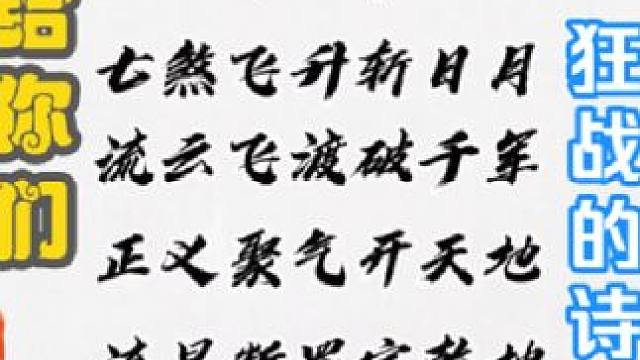 给你们
七煞飞升斩日月
流云飞渡破千军
正义聚气开天地
狂战的诗